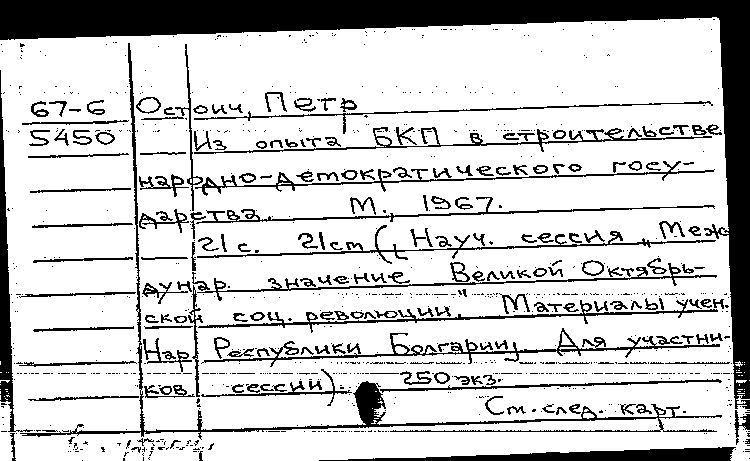 67-6 Остоич, Петр.
5450 Из опыта БКП в строительстве
народно-демократического госу-
дарства. М., 1967.
21с. 21cm (Науч. сессия „Меж
дунар. значение Великой Октябрь-
ской соц. революции." Материалы учен.
Нар. Республики Болгарии, Для участни-
ков сессии). 250 экз.
См. след. карт.